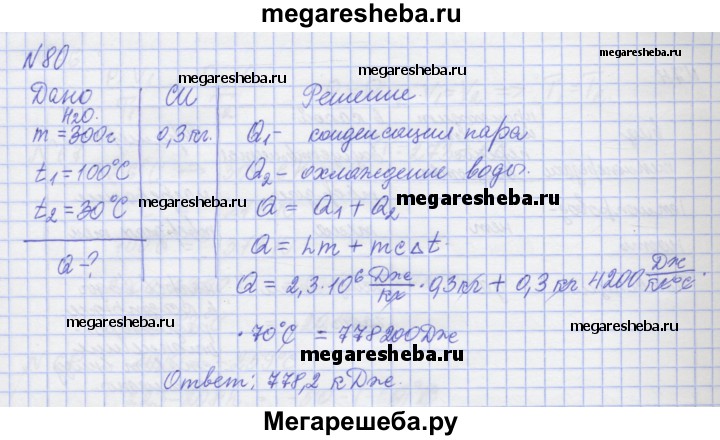 megaresheba.ru
N80
megaresheba.ru
megaresheba.ru
Дано
СИ
Решение
H2O.
m = 300г
0,3 кг.
Q1 - конденсация пара
t1 = 100°C
Q2 - охлаждение воды.
t2 = 30°C
megaresheba.ru
megaresheba.ru
Q = Q1 + Q2
Q = Lm + mcΔt.
Q - ?
Q = 2,3·10^6 Дж/кг · 0,3 кг + 0,3 кг 4200 Дж/кг°C ·
megaresheba.ru
megaresheba.ru
· 70°C = 778200 Дж
megaresheba.ru
Ответ; 778,2 кДж.
Мегарешеба.ру